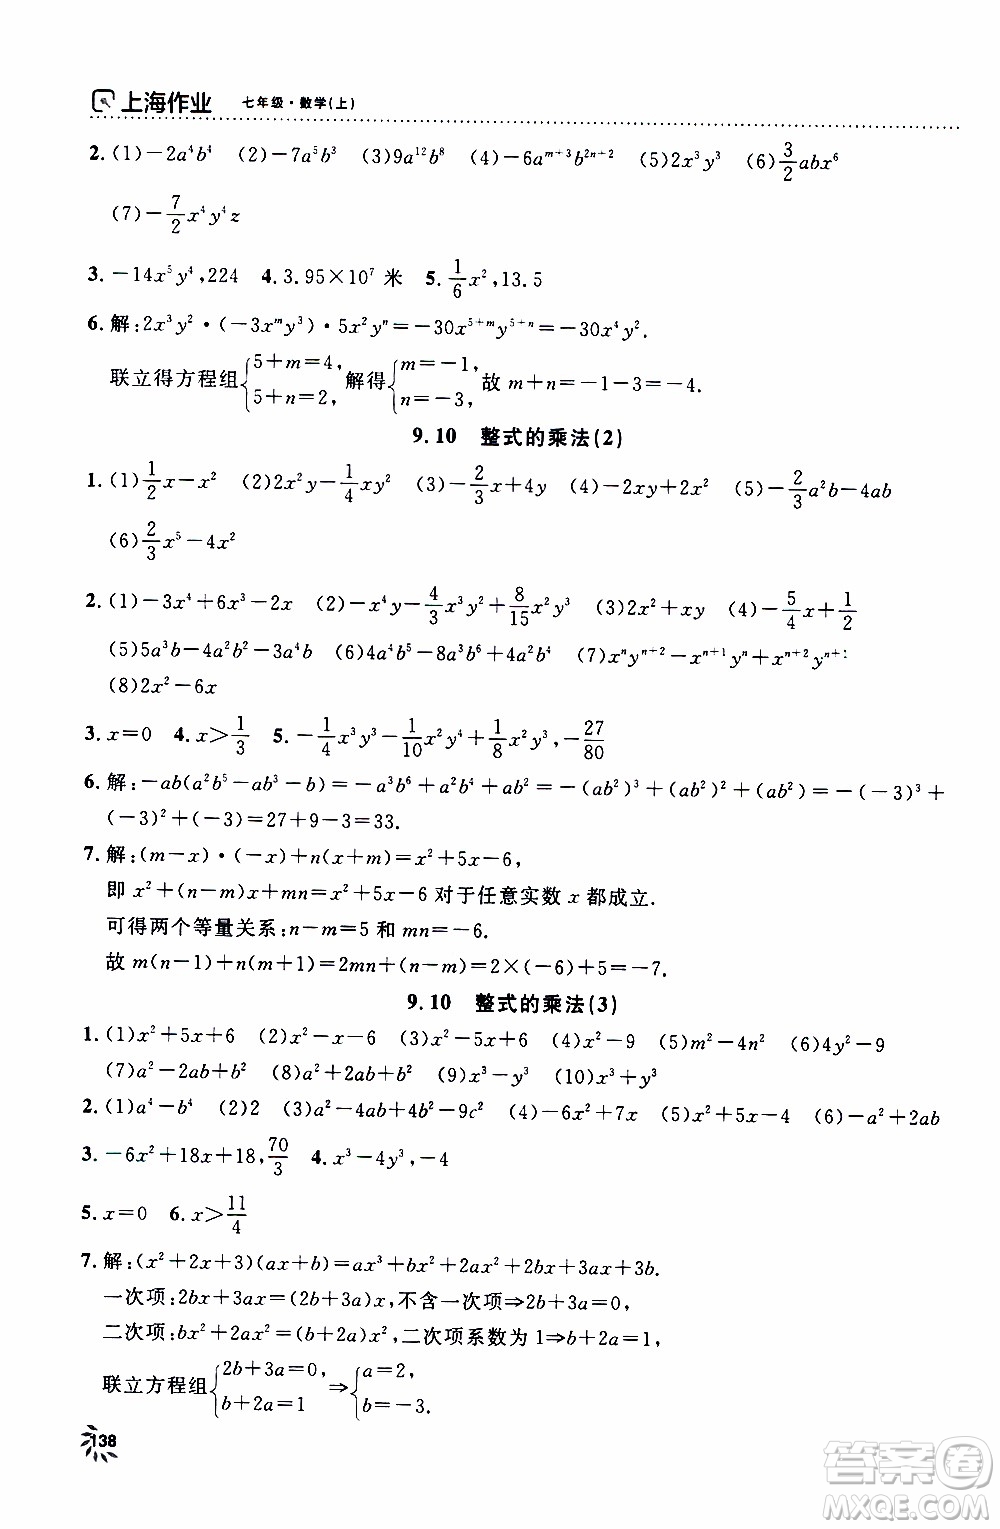 上海作业 七年级·数学(上)
2. (1)−2a⁴b⁴ (2)−7a⁵b³ (3)9a¹²b⁸ (4)−6aᵐ⁺³b²ⁿ⁺² (5)2x³y³ (6)3/2abx⁶
(7)−7/2x⁴y⁴z
3. −14x⁵y⁴,224 4. 3.95×10⁷ 米 5. 1/6x²,13.5
6. 解:2x³y²·(−3xᵐy³)·5x²yⁿ=−30x⁵⁺ᵐy⁵⁺ⁿ=−30x⁴y².
联立得方程组{5+m=4, 5+n=2, 解得{m=−1, n=−3, 故 m+n=−1−3=−4.
9.10 整式的乘法(2)
1. (1)1/2x−x² (2)2x²y−1/4xy² (3)−2/3x+4y (4)−2xy+2x² (5)−2/3a²b−4ab
(6)2/3x⁵−4x²
2. (1)−3x⁴+6x³−2x (2)−x⁴y−4/3x³y²+8/15x²y³ (3)2x²+xy (4)−5/4x+1/2
(5)5a³b−4a²b²−3a⁴b (6)4a⁴b⁵−8a³b⁶+4a²b⁴ (7)xⁿyⁿ⁺²−xⁿ⁺¹yⁿ+xⁿ⁺²yⁿ⁺
(8)2x²−6x
3. x=0 4. x>1/3 5. −1/4x³y³−1/10x²y⁴+1/8x²y³,−27/80
6. 解:−ab(a²b⁵−ab³−b)=−a³b⁶+a²b⁴+ab²=−(ab²)³+(ab²)²+(ab²)=−(−3)³+
(−3)²+(−3)=27+9−3=33.
7. 解:(m−x)·(−x)+n(x+m)=x²+5x−6,
即 x²+(n−m)x+mn=x²+5x−6 对于任意实数 x 都成立.
可得两个等量关系:n−m=5 和 mn=−6.
故 m(n−1)+n(m+1)=2mn+(n−m)=2×(−6)+5=−7.
9.10 整式的乘法(3)
1. (1)x²+5x+6 (2)x²−x−6 (3)x²−5x+6 (4)x²−9 (5)m²−4n² (6)4y²−9
(7)a²−2ab+b² (8)a²+2ab+b² (9)x³−y³ (10)x³+y³
2. (1)a⁴−b⁴ (2)2 (3)a²−4ab+4b²−9c² (4)−6x²+7x (5)x²+5x−4 (6)−a²+2ab
3. −6x²+18x+18,70/3 4. x³−4y³,−4
5. x=0 6. x>11/4
7. 解:(x²+2x+3)(ax+b)=ax³+bx²+2ax²+2bx+3ax+3b.
一次项:2bx+3ax=(2b+3a)x,不含一次项⇒2b+3a=0,
二次项:bx²+2ax²=(b+2a)x²,二次项系数为 1⇒b+2a=1,
联立方程组{2b+3a=0, b+2a=1 ⇒{a=2, b=−3.
138
答案圈
MXQE.COM